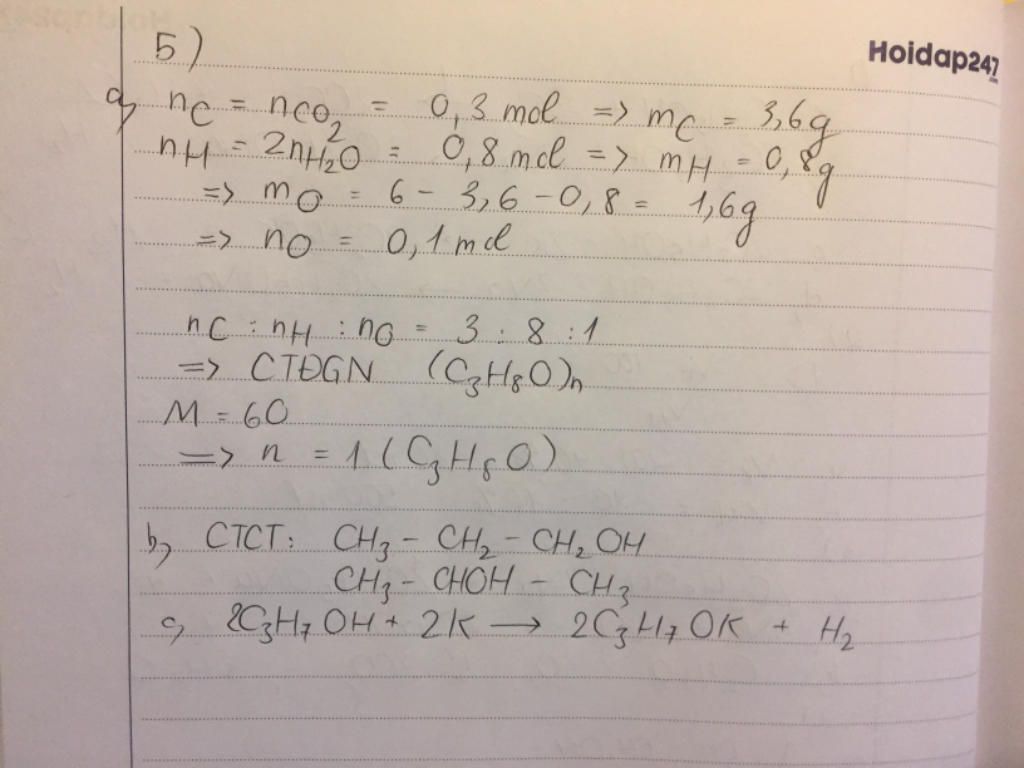 Hoidap247
5)
a, nC = nCO2 = 0,3 mol => mC = 3,6g
nH = 2nH2O = 0,8 mol => mH = 0,8g
=> mO = 6 - 3,6 - 0,8 = 1,6g
=> nO = 0,1 mol
nC : nH : nO = 3 : 8 : 1
=> CTĐGN (C3H8O)n
M = 60
=> n = 1 (C3H8O)
b, CTCT: CH3 - CH2 - CH2OH
CH3 - CHOH - CH3
c, 2C3H7OH + 2K → 2C3H7OK + H2